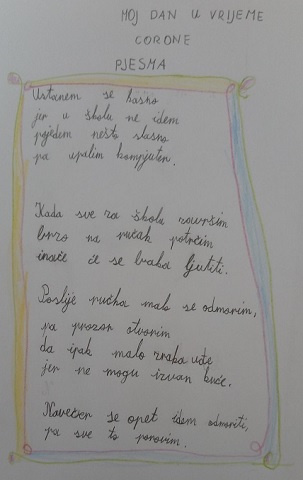 MOJ DAN U VRIJEME
CORONE
PJESMA
Ustanem se kasno
jer u školu ne idem
pojedem nešto slasno
pa upalim kompjuter.
Kada sve za školu završim
brzo na ručak potrčim
inače će se baba ljutiti.
Poslije ručka malo se odmorim,
pa prozor otvorim
da ipak malo zraka uđe
jer ne mogu izvan kuće.
Navečer se opet idem odmoriti,
pa sve to ponovim.